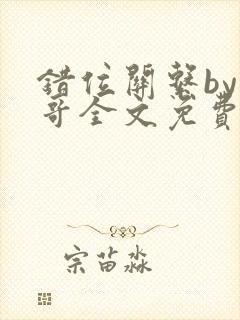 错位關繫by
哥全文免費
宗苗淼